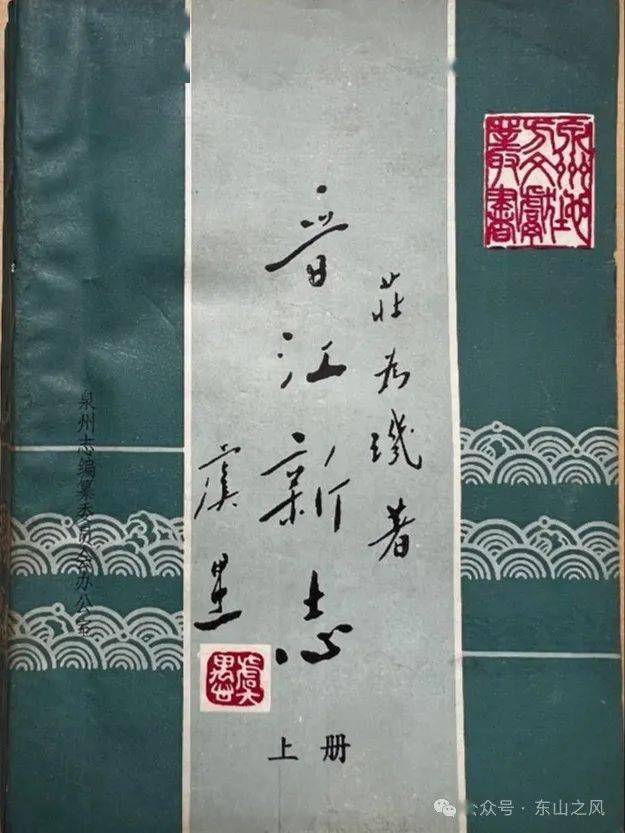 泉州地
方文獻
叢書
莊为璣著
晋江新志
虞愚
虞愚
上册
泉州志编纂委员会办公室
公众号·东山之风